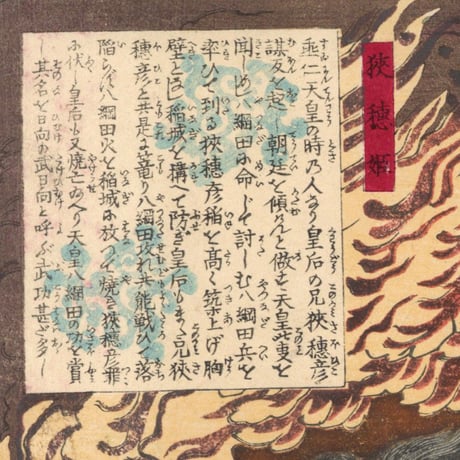 狭穂姫
垂仁天皇の時乃人なり皇后の兄狭穂彦
謀反を起し朝廷を傾んと做を天皇此叓を
聞しめし八綱田に命じて討しむ八綱田兵を
率ひて到る狭穂彦稲を高く築上げ胸
壁とし稲城を構へて防ぎ皇后も兄狭
穂彦と共是に篭り八綱田攻れ共能戦ひて落
陥らず八綱田火を稲城に放つて焼き狭穂彦罪
に伏し皇后も又焼亡 天皇八綱田の功を賞
し其名を日向の武日向と呼ぶ武功甚だ多し